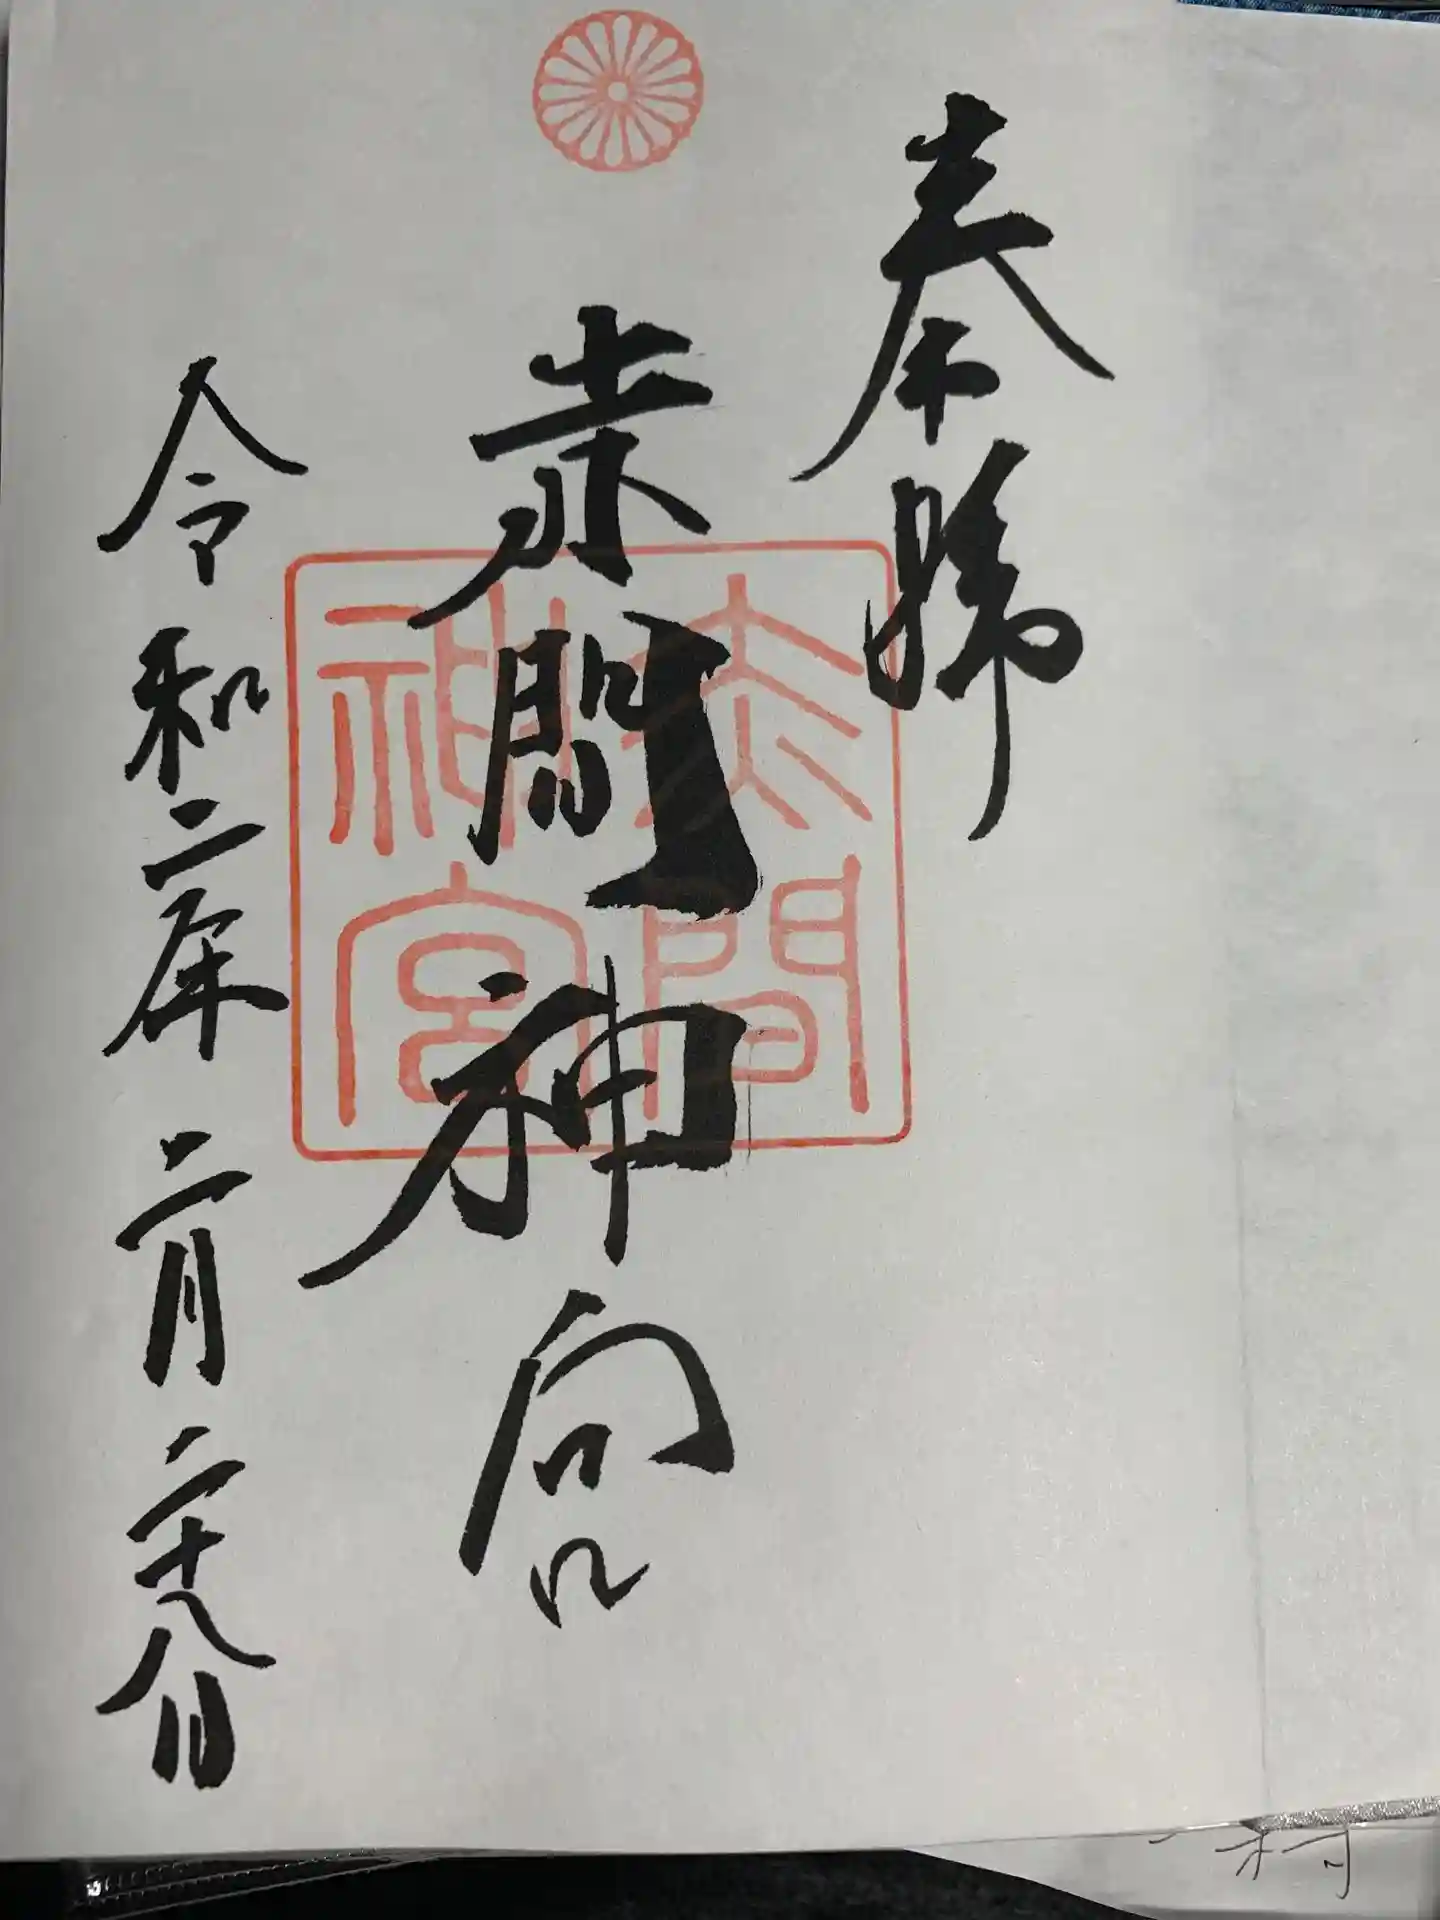 奉拝
赤間神宮
令和二年二月二十八日
赤間
神宮
村